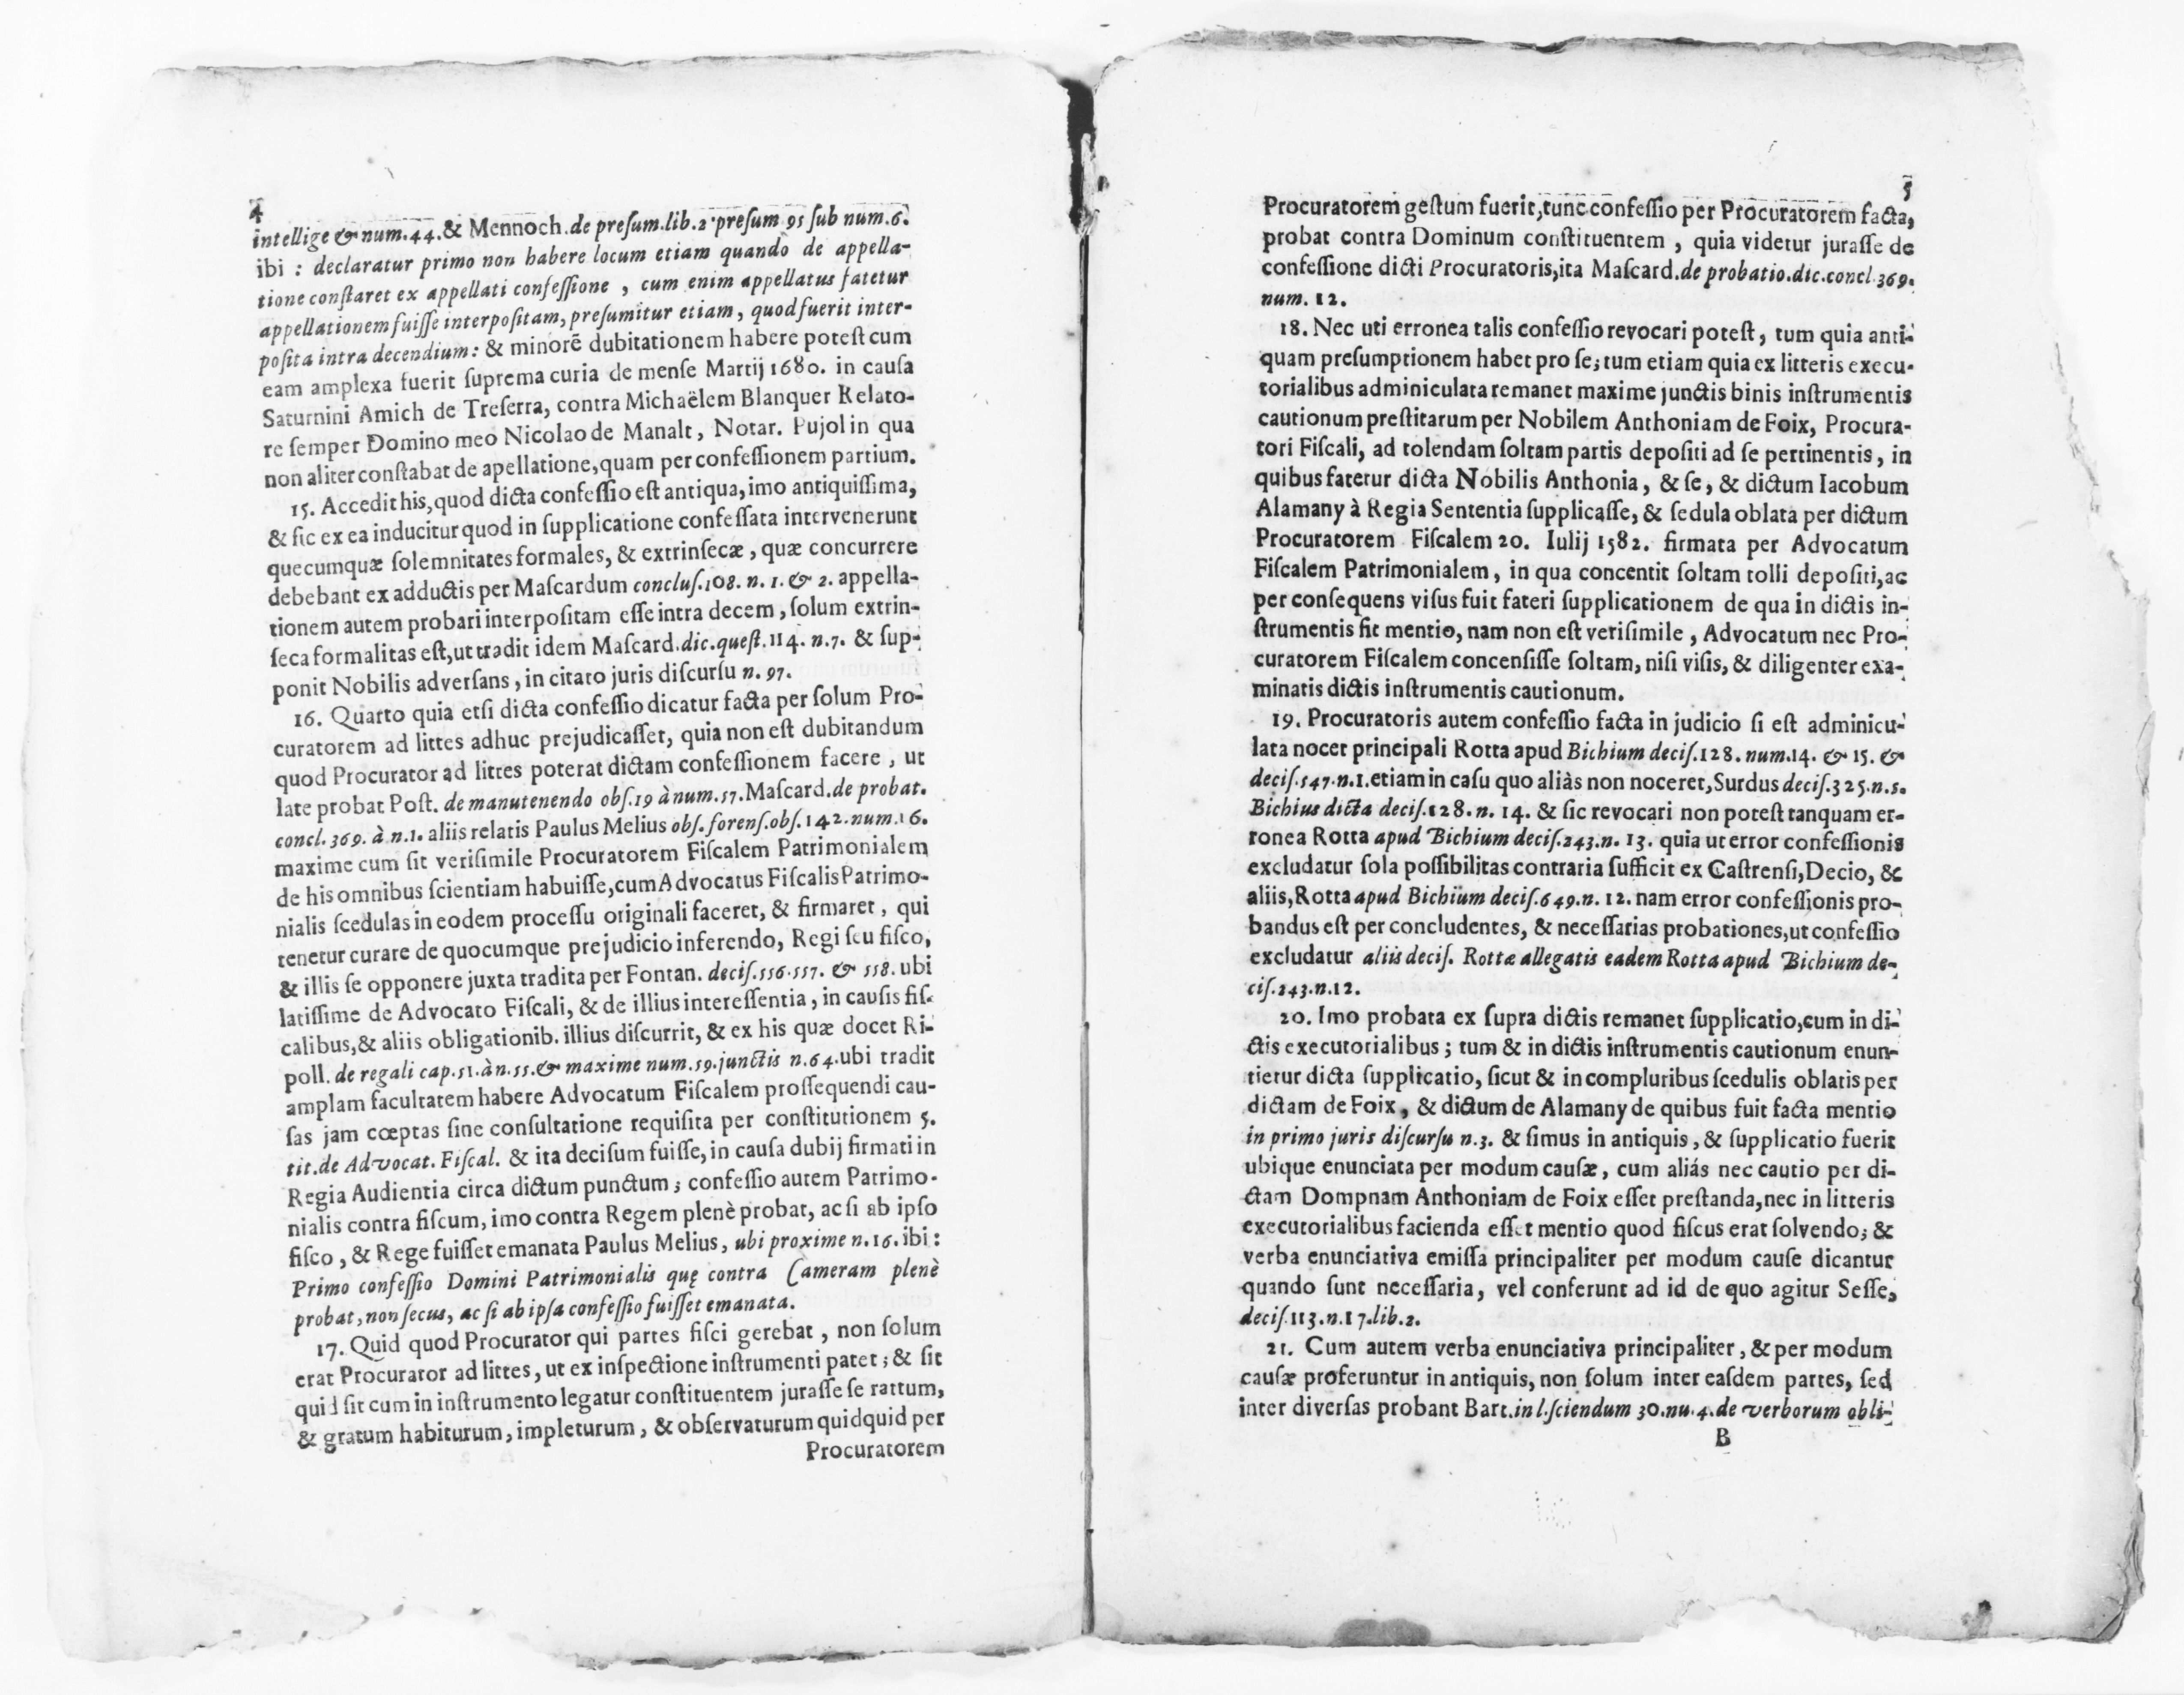 4
intellige & num.44.& Mennoch.de preſum.lib.2·preſum 95 ſub num.6.
ibi : declaratur primo non habere locum etiam quando de appella-
tione conſtaret ex appellati confeſſione , cum enim appellatus fatetur
appellationem fuiſſe interpoſitam, preſumitur etiam, quod fuerit inter-
poſita intra decendium: & minorē dubitationem habere poteſt cum
eam amplexa fuerit ſuprema curia de menſe Martij 1680. in cauſa
Saturnini Amich de Treſerra, contra Michaëlem Blanquer Relato-
re ſemper Domino meo Nicolao de Manalt, Notar. Pujol in qua
non aliter conſtabat de apellatione,quam per confeſſionem partium.
15. Accedit his,quod dicta confeſſio eſt antiqua, imo antiquiſſima,
& ſic ex ea inducitur quod in ſupplicatione confeſſata intervenerunt
quecumquæ ſolemnitates formales, & extrinſecæ, quæ concurrere
debebant ex adductis per Maſcardum concluſ.108. n. 1. & 2. appella-
tionem autem probari interpoſitam eſſe intra decem, ſolum extrin-
ſeca formalitas eſt,ut tradit idem Maſcard.dic.queſt.114. n.7. & ſup-
ponit Nobilis adverſans, in citato juris diſcurſu n. 97.
16. Quarto quia etſi dicta confeſſio dicatur facta per ſolum Pro-
curatorem ad littes adhuc prejudicaſſet, quia non eſt dubitandum
quod Procurator ad littes poterat dictam confeſſionem facere, ut
late probat Poſt. de manutenendo obſ.19 à num.57.Maſcard.de probat.
concl. 369. à n.1. aliis relatis Paulus Melius obſ. forenſ.obſ.142.num.16.
maxime cum ſit veriſimile Procuratorem Fiſcalem Patrimonialem
de his omnibus ſcientiam habuiſſe,cum Advocatus Fiſcalis Patrimo-
nialis ſcedulas in eodem proceſſu originali faceret, & firmaret, qui
tenetur curare de quocumque prejudicio inferendo, Regi ſeu fiſco,
& illis ſe opponere juxta tradita per Fontan. deciſ.556.557. & 558. ubi
latiſſime de Advocato Fiſcali, & de illius intereſſentia, in cauſis fiſ-
calibus,& aliis obligationib. illius diſcurrit, & ex his quæ docet Ri-
poll. de regali cap.51.à n.55.& maxime num.59.junctis n.64.ubi tradit
amplam facultatem habere Advocatum Fiſcalem proſſequendi cau-
ſas jam cœptas ſine conſultatione requiſita per conſtitutionem 5.
tit.de Advocat. Fiſcal. & ita deciſum fuiſſe, in cauſa dubij firmati in
Regia Audientia circa dictum punctum; confeſſio autem Patrimo-
nialis contra fiſcum, imo contra Regem plenè probat, ac ſi ab ipſo
fiſco, & Rege fuiſſet emanata Paulus Melius, ubi proxime n.16. ibi:
Primo confeſſio Domini Patrimonialis quę contra Cameram plenè
probat, non ſecus, ac ſi ab ipſa confeſſio fuiſſet emanata.
17. Quid quod Procurator qui partes fiſci gerebat, non ſolum
erat Procurator ad littes, ut ex inſpectione inſtrumenti patet; & ſit
quid ſit cum in inſtrumento legatur conſtituentem juraſſe ſe rattum,
& gratum habiturum, impleturum, & obſervaturum quidquid per
Procuratorem
5
Procuratorem geſtum fuerit,tunc confeſſio per Procuratorem facta,
probat contra Dominum conſtituentem, quia videtur juraſſe de
confeſſione dicti Procuratoris,ita Maſcard.de probatio.dic.concl.369.
num. 12.
18. Nec uti erronea talis confeſſio revocari poteſt, tum quia anti-
quam preſumptionem habet pro ſe; tum etiam quia ex litteris execu-
torialibus adminiculata remanet maxime junctis binis inſtrumentis
cautionum preſtitarum per Nobilem Anthoniam de Foix, Procura-
tori Fiſcali, ad tolendam ſoltam partis depoſiti ad ſe pertinentis, in
quibus fatetur dicta Nobilis Anthonia, & ſe, & dictum Iacobum
Alamany à Regia Sententia ſupplicaſſe, & ſedula oblata per dictum
Procuratorem Fiſcalem 20. Iulij 1582. firmata per Advocatum
Fiſcalem Patrimonialem, in qua concentit ſoltam tolli depoſiti,ac
per conſequens viſus fuit fateri ſupplicationem de qua in dictis in-
ſtrumentis fit mentio, nam non eſt veriſimile, Advocatum nec Pro-
curatorem Fiſcalem concenſiſſe ſoltam, niſi viſis, & diligenter exa-
minatis dictis inſtrumentis cautionum.
19. Procuratoris autem confeſſio facta in judicio ſi eſt adminicu-
lata nocet principali Rotta apud Bichium deciſ.128. num.14. & 15. &
deciſ.547.n.1.etiam in caſu quo aliàs non noceret,Surdus deciſ.325.n.5.
Bichius dicta deciſ.128.n. 14. & ſic revocari non poteſt tanquam er-
ronea Rotta apud Bichium deciſ.243.n. 13. quia ut error confeſſionis
excludatur ſola poſſibilitas contraria ſufficit ex Caſtrenſi,Decio, &
aliis,Rotta apud Bichium deciſ.649.n. 12. nam error confeſſionis pro-
bandus eſt per concludentes, & neceſſarias probationes,ut confeſſio
excludatur aliis deciſ. Rottæ allegatis eadem Rotta apud Bichium de-
ciſ.243.n.12.
20. Imo probata ex ſupra dictis remanet ſupplicatio,cum in di-
ctis executorialibus; tum & in dictis inſtrumentis cautionum enun-
tietur dicta ſupplicatio, ſicut & in compluribus ſcedulis oblatis per
dictam de Foix, & dictum de Alamany de quibus fuit facta mentio
in primo juris diſcurſu n.3. & ſimus in antiquis, & ſupplicatio fuerit
ubique enunciata per modum cauſæ, cum aliás nec cautio per di-
ctam Dompnam Anthoniam de Foix eſſet preſtanda,nec in litteris
executorialibus facienda eſſet mentio quod fiſcus erat ſolvendo; &
verba enunciativa emiſſa principaliter per modum cauſe dicantur
quando ſunt neceſſaria, vel conferunt ad id de quo agitur Seſſe,
deciſ.113.n.17.lib.2.
21. Cum autem verba enunciativa principaliter, & per modum
cauſæ proferuntur in antiquis, non ſolum inter eaſdem partes, ſed
inter diverſas probant Bart.in l.ſciendum 30.nu.4.de verborum obli-
B